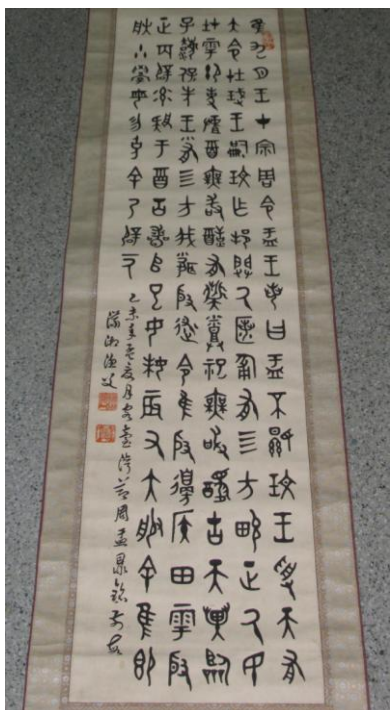 隹九月王才宗周令盂王若曰盂不顯玟王受天有
大令在珷王嗣玟乍邦闢厥匿匍有四方畯正厥民
在雩御事酉無敢有烝祀無敢古天異臨
子灋保先王有四方我聞殷述令隹殷邊侯田雩殷
正百辟率肄于酉古喪師已女妹辰又大服余隹即
朕小學女勿余乃辟一
己未孟夏月客臺灣節周盂鼎銘
瀟湘漁父